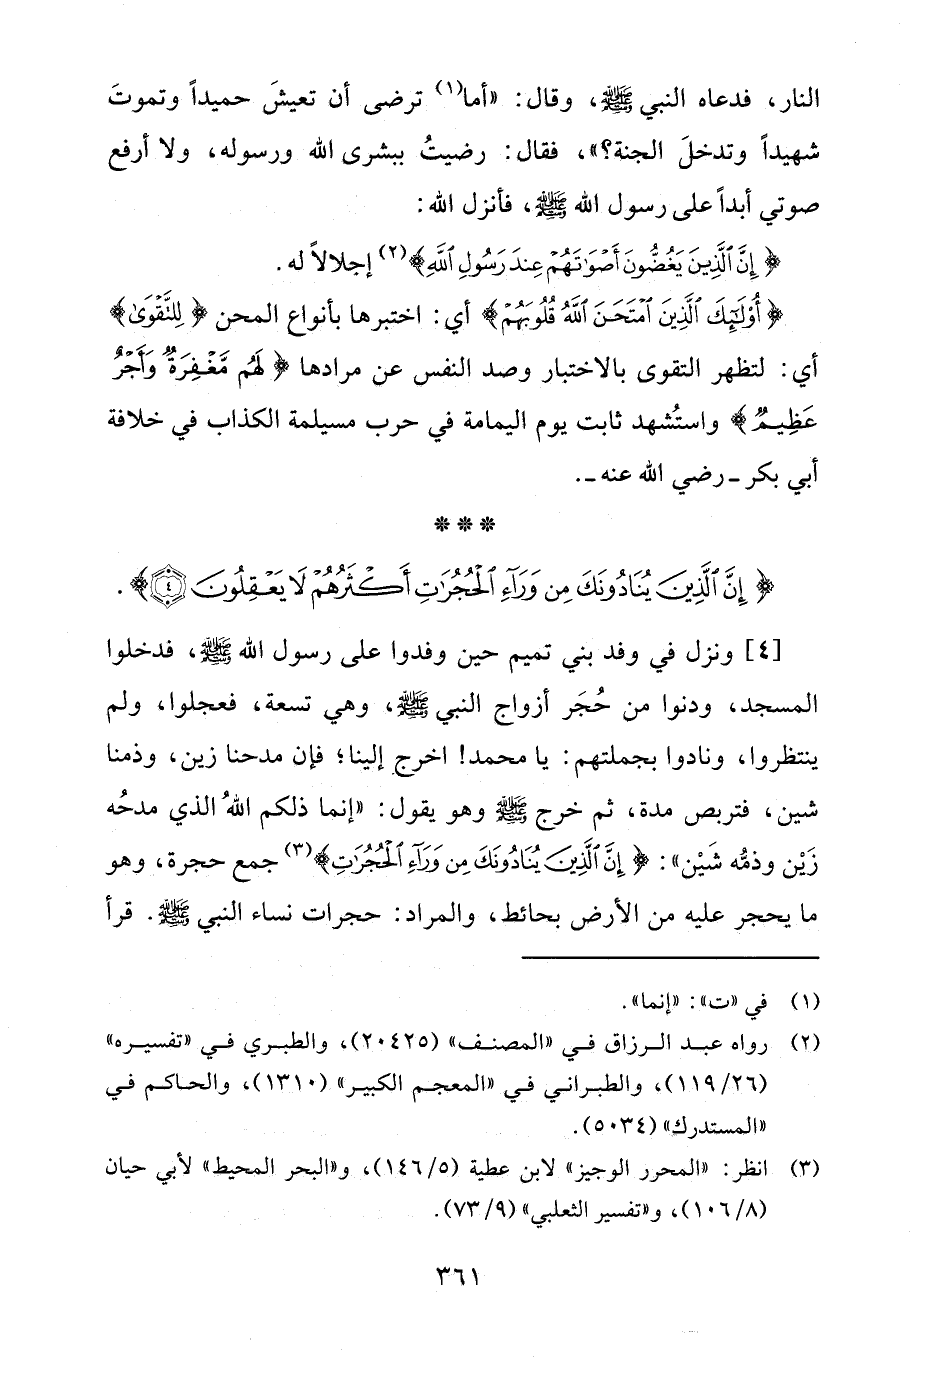 النار، فدعاه النبي ﷺ، وقال: «أما(١) ترضى أن تعيشَ حميداً وتموتَ
شهيداً وتدخلَ الجنة؟»، فقال: رضيتُ ببشرى الله ورسوله، ولا أرفع
صوتي أبداً على رسول الله ﷺ، فأنزل الله:
﴿إِنَّ ٱلَّذِينَ يَغُضُّونَ أَصْوَٰتَهُمْ عِندَ رَسُولِ ٱللَّهِ﴾(٢) إجلالاً له.
﴿أُوْلَٰٓئِكَ ٱلَّذِينَ ٱمْتَحَنَ ٱللَّهُ قُلُوبَهُمْ﴾ أي: اختبرها بأنواع المحن ﴿لِلتَّقْوَىٰ﴾
أي: لتظهر التقوى بالاختبار وصد النفس عن مرادها ﴿لَهُم مَّغْفِرَةٌ وَأَجْرٌ
عَظِيمٌ﴾ واستُشهد ثابت يوم اليمامة في حرب مسيلمة الكذاب في خلافة
أبي بكر ـ رضي الله عنه ـ.
* * *
﴿إِنَّ ٱلَّذِينَ يُنَادُونَكَ مِن وَرَآءِ ٱلْحُجُرَٰتِ أَكْثَرُهُمْ لَا يَعْقِلُونَ ۝٤﴾.
[٤] ونزل في وفد بني تميم حين وفدوا على رسول الله ﷺ، فدخلوا
المسجد، ودنوا من حُجَر أزواج النبي ﷺ، وهي تسعة، فعجلوا، ولم
ينتظروا، ونادوا بجملتهم: يا محمد! اخرج إلينا؛ فإن مدحنا زين، وذمنا
شين، فتربص مدة، ثم خرج ﷺ وهو يقول: «إنما ذلكم اللهُ الذي مدحُه
زَيْن وذمُّه شَيْن»: ﴿إِنَّ ٱلَّذِينَ يُنَادُونَكَ مِن وَرَآءِ ٱلْحُجُرَٰتِ﴾(٣) جمع حجرة، وهو
ما يحجر عليه من الأرض بحائط، والمراد: حجرات نساء النبي ﷺ. قرأ
(١) في «ت»: «إنما».
(٢) رواه عبد الرزاق في «المصنف» (٢٠٤٢٥)، والطبري في «تفسيره»
(٢٦/ ١١٩)، والطبراني في «المعجم الكبير» (١٣١٠)، والحاكم في
«المستدرك» (٥٠٣٤).
(٣) انظر: «المحرر الوجيز» لابن عطية (٥/ ١٤٦)، و«البحر المحيط» لأبي حيان
(٨/ ١٠٦)، و«تفسير الثعلبي» (٩/ ٧٣).
٣٦١